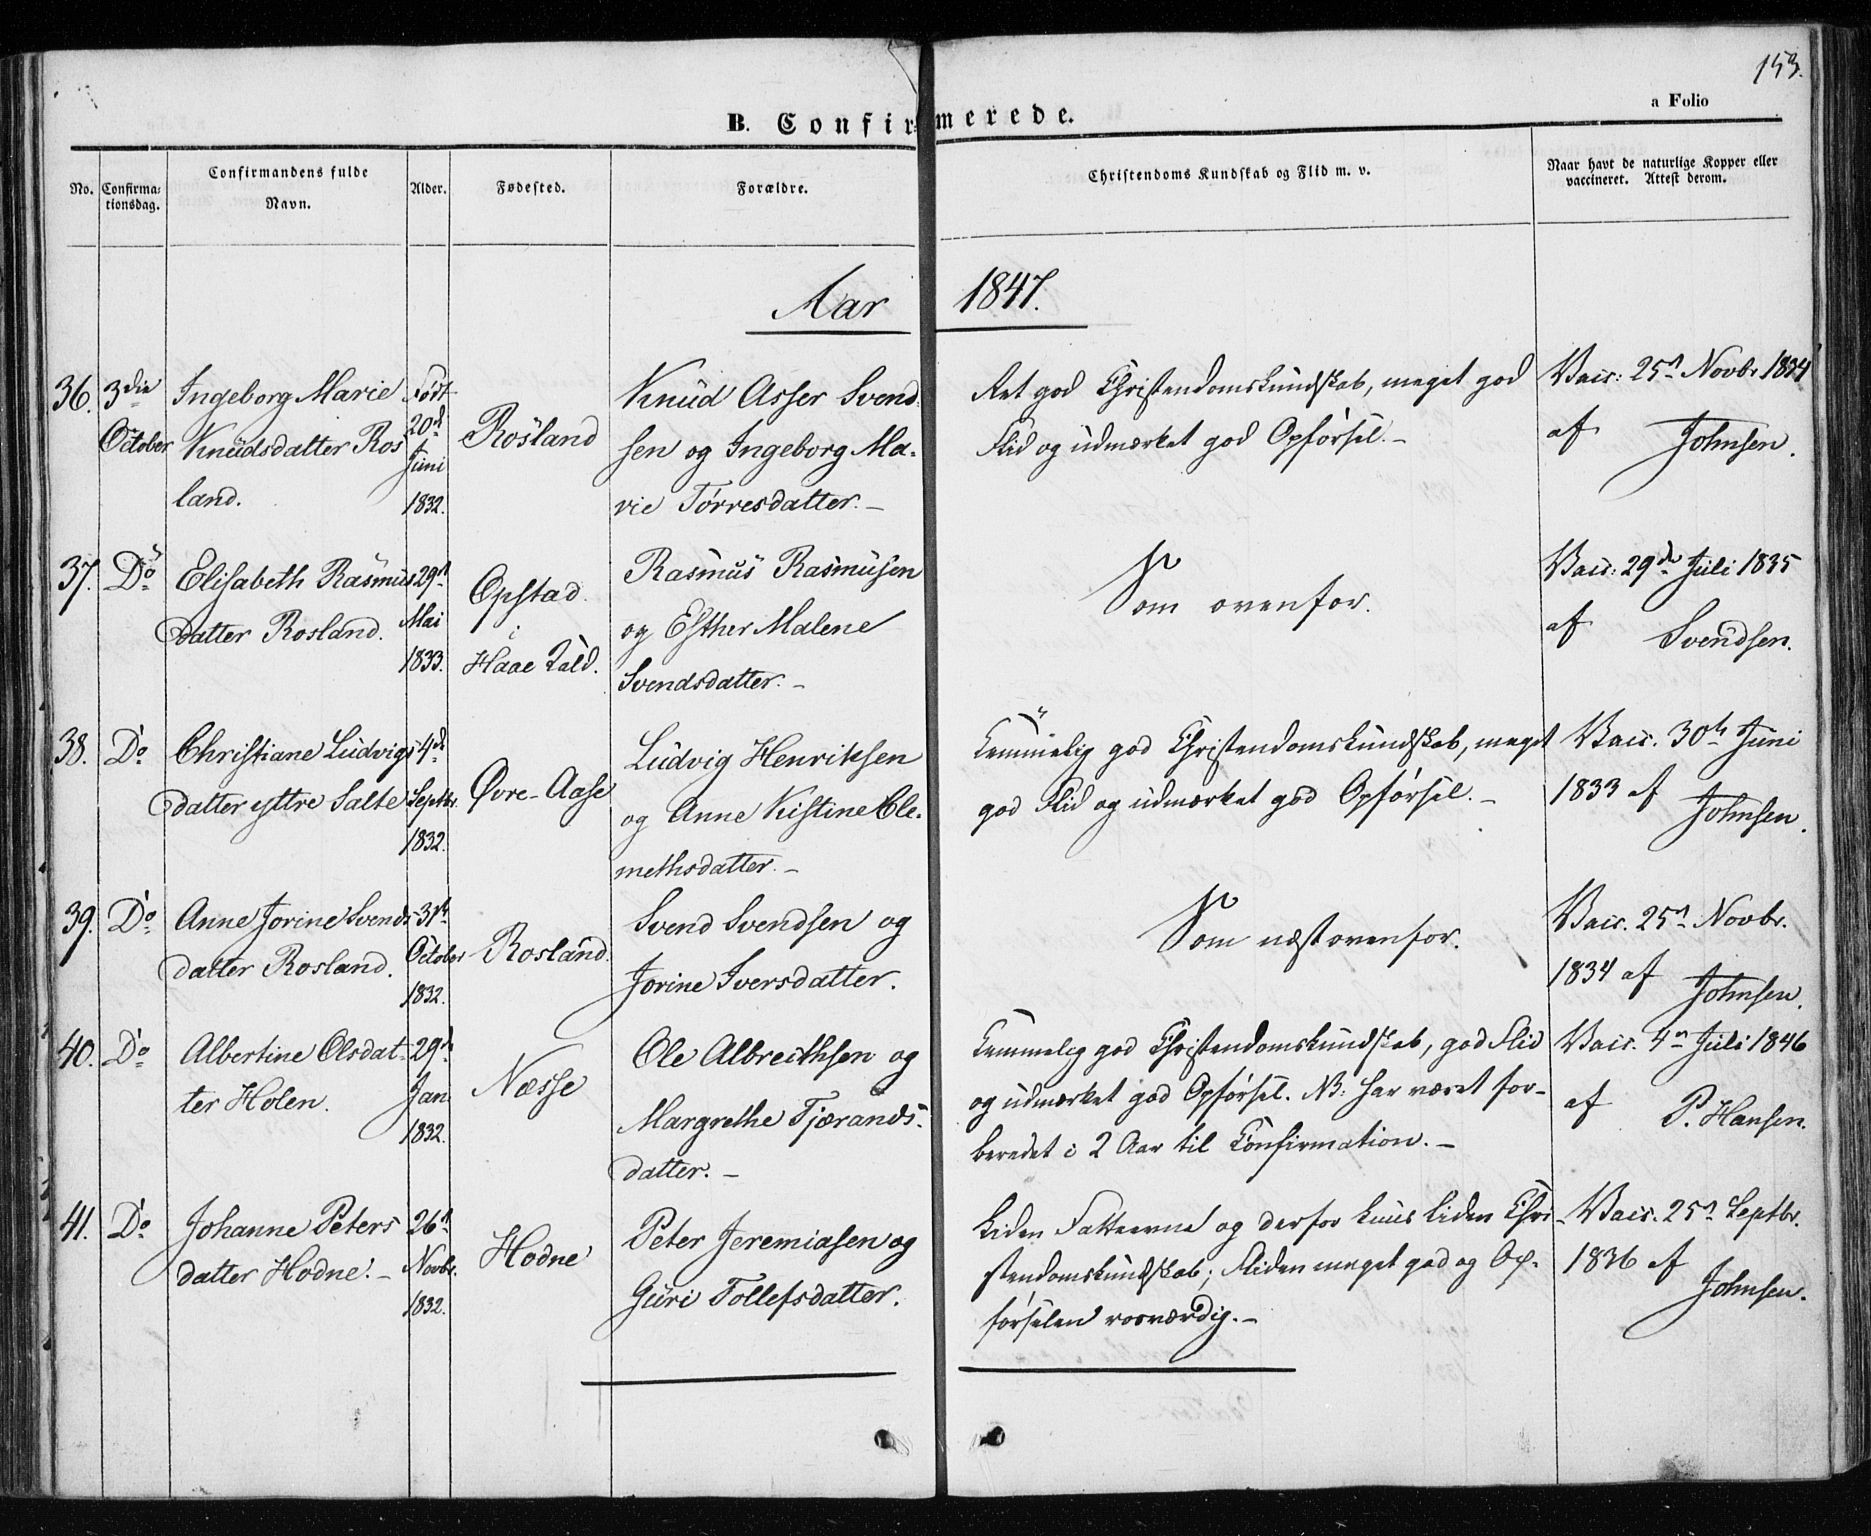 153.
a Folio
B. Confirmerede.
No.
Confirma-
tionsdag.
Confirmandens fulde
Navn.
Alder.
Fødested.
Forældre.
Christendoms Kundskab og Flid m. v.
Naar havt de naturlige Kopper eller
vaccineret. Attest derom.
Aar 1847.
36.
3die
October
Ingeborg Marie
Knudsdatter Ros
land.
Født
20d
Juni
1832.
Rosland
Knud Asser Svend
sen og Ingeborg Ma-
rie Tørresdatter. -
Ret god Christendomskundskab, meget god
Flid og udmærket god Opførsel. -
Vacc: 25n Novbr 1834
af Johnsen.
37.
Do
Elisabeth Rasmus
datter Rosland.
29n
Mai
1833.
Opstad
i
Haae Kald.
Rasmus Rasmusen
og Esther Malene
Svendsdatter. -
Som ovenfor.
Vacc: 29de Juli 1835
af Svendsen.
38.
Do
Christiane Ludvigs
datter yttre Salte
4de
Septbr.
1832.
Øvre-Aase
Ludvig Henriksen
og Anne Kistine Cle-
methsdatter. -
Temmelig god Christendomskundskab, meget
god Flid og udmærket god Opførsel. -
Vacc. 30te Juni
1833 af
Johnsen.
39.
Do
Anne Jorine Svends
datter Rosland.
31te
October
1832.
Rosland.
Svend Svendsen og
Jorine Iversdatter.
Som næstovenfor.
Vacc. 25n Novbr.
1834 af
Johnsen.
40.
Do
Albertine Olsdat-
ter Holen.
29n
Jan.
1832.
Næsse
Ole Albrecthsen og
Margrethe Tjærands-
datter. -
Temmelig god Christendomskundskab, god Flid
og udmærket god Opførsel. NB: har været for-
beredet i 2 Aar til Confirmation. -
Vacc. 4n Juli 1846
af P. Hansen.
41.
Do
Johanne Peters
datter Hodne. -
26n
Novbr.
1832.
Hodne
Peter Jeremiasen og
Guri Tollefsdatter.
Liden Fatteevne og derfor kuns liden Chri-
stendomskundskab; Fliden meget god og Op-
førselen rosværdig. -
Vacc. 25n Septbr.
1836 af
Johnsen.